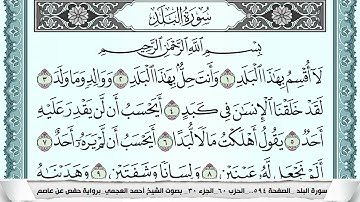 سُورَةُ الْبَلَدِ
بِسْمِ اللَّهِ الرَّحْمَٰنِ الرَّحِيمِ
لَا أُقْسِمُ بِهَٰذَا الْبَلَدِ ١ وَأَنتَ حِلٌّ بِهَٰذَا الْبَلَدِ ٢ وَوَالِدٍ وَمَا وَلَدَ ٣
لَقَدْ خَلَقْنَا الْإِنسَانَ فِي كَبَدٍ ٤ أَيَحْسَبُ أَن لَّن يَقْدِرَ عَلَيْهِ
أَحَدٌ ٥ يَقُولُ أَهْلَكْتُ مَالًا لُّبَدًا ٦ أَيَحْسَبُ أَن لَّمْ يَرَهُ أَحَدٌ ٧
أَلَمْ نَجْعَل لَّهُ عَيْنَيْنِ ٨ وَلِسَانًا وَشَفَتَيْنِ ٩ وَهَدَيْنَاهُ
سورة البلد _الصفحة ٥٩٤_ الحزب ٦٠_الجزء ٣٠_ بصوت الشيخ أحمد العجمي _برواية حفص عن عاصم